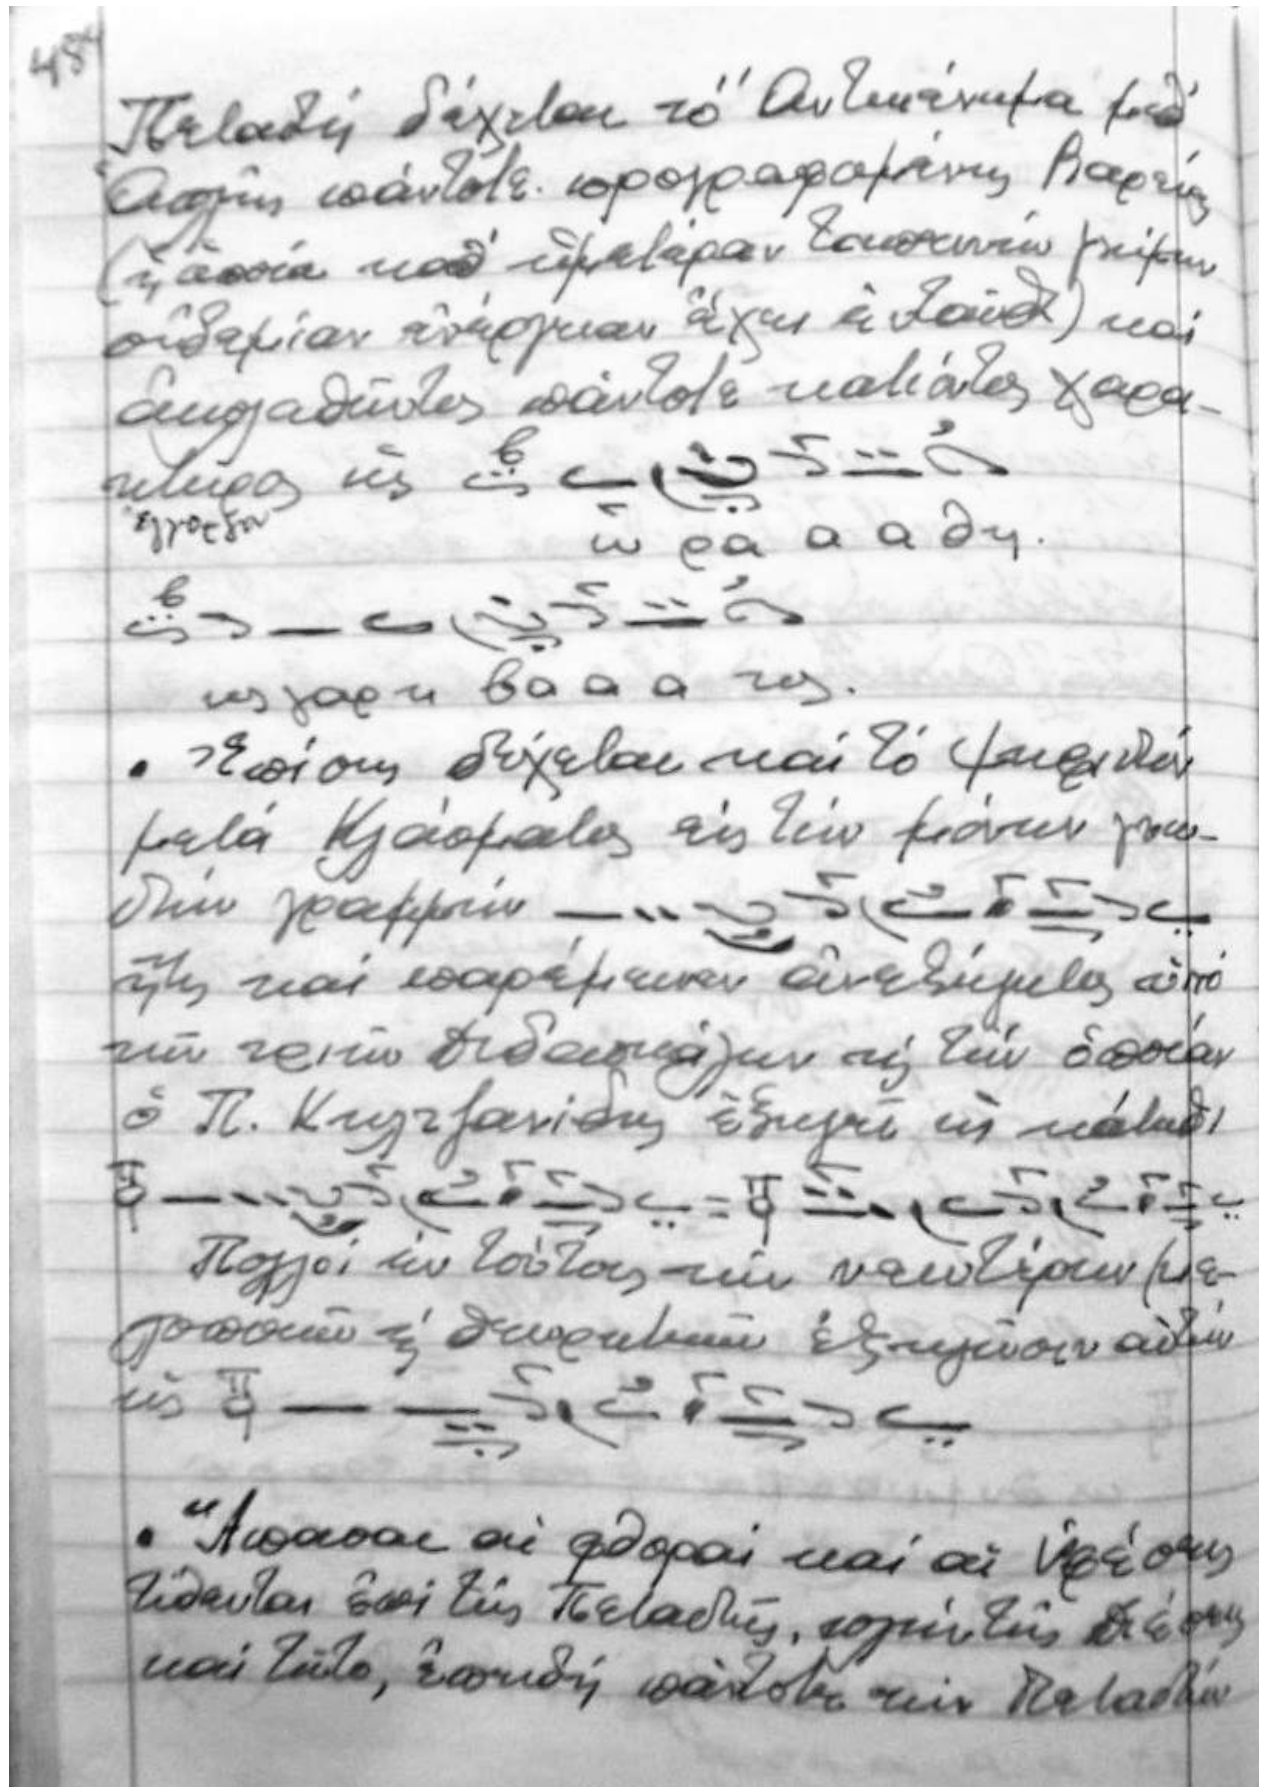 Πεταστή δέχεται τό Αντικένωμα μεθ'
Απλῆς πάντοτε προγραφομένης Βαρείας
(ἡ ὁποία καθ' ἡμετέραν ταπεινήν γνώμην
οὐδεμίαν ἐνέργειαν ἔχει ἐνταῦθα) καί
ἀκολουθοῦντος πάντοτε κατιόντος χαρα-
κτῆρος ὡς
ὡ ρα α α θη.
κς γαρ κε βα α α τος.
• Ἐπίσης δέχεται καί τό Ψηφιστόν
μετά Κλάσματος εἰς τήν μόνην γνω-
στήν γραμμήν
ἥτις καί παρέμεινεν ἀνεξήγητος ὑπό
τῶν τριῶν Διδασκάλων τήν ὁποίαν
ὁ Π. Κηλτζανίδης ἐξηγεῖ ὡς κάτωθι
Πολλοί ἐν τούτοις τῶν νεωτέρων με-
λοποιῶν ἤ θεωρητικῶν ἐξηγοῦσιν αὐτήν
ὡς
• Ἅπασαι αἱ φθοραί καί αἱ ὑφέσεις
τίθενται ἐπί τῆς Πεταστῆς, πλήν τῆς διέσεως
καί τοῦτο, ἐπειδή πάντοτε τήν Πεταστήν